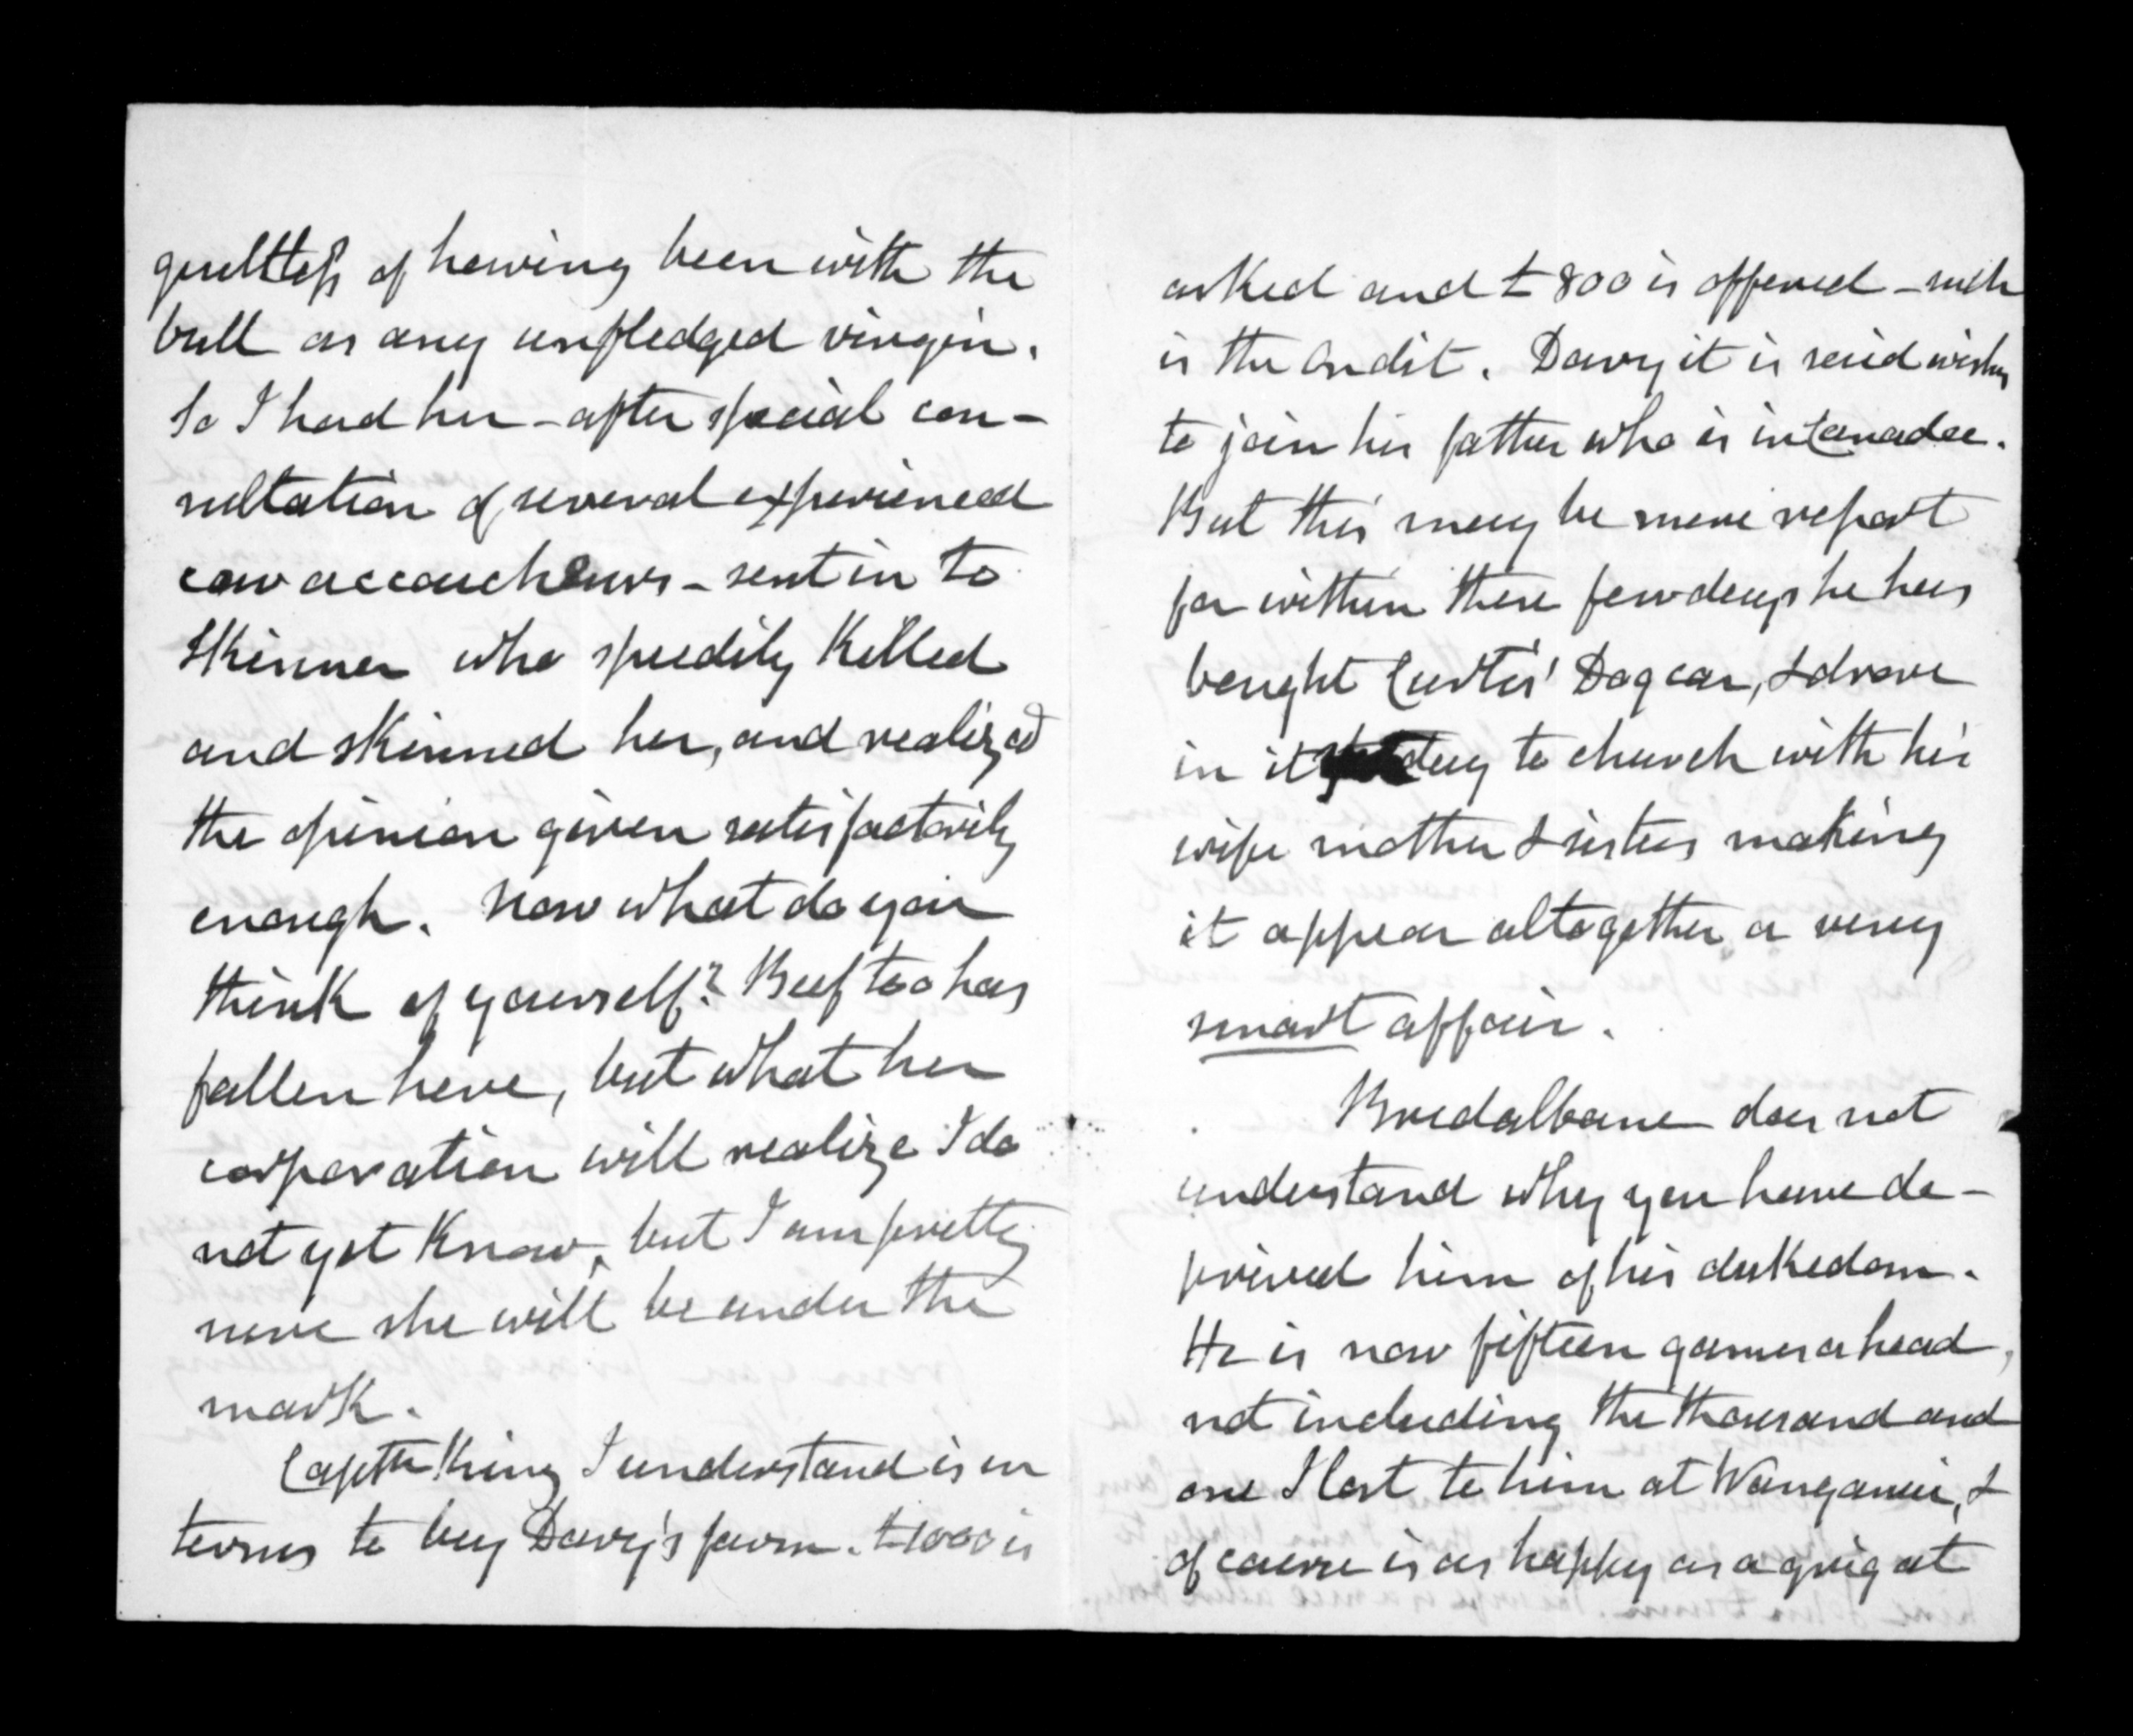 guiltless of having been with the
bull as any unfledged virgin.
So I had her - after special con-
sultation of several experienced
cow accoucheurs - sent in to
Skinner who speedily killed
and skinned her, and realized
the opinion given satisfactorily
enough. Now what do you
think of yourself? Beef too has
fallen here, but what her
corporation will realize I do
not yet know, but I am pretty
sure she will be under the
mark.
Captn King I understand is in
terms to buy Davy's farm. £1000 is
asked and £800 is offered - such
is the ondit. Davy it is said wishes
to join his father who is in Canada.
But this may be mere report
for within these few days he has
bought Curtis' Dog car, & drove
in it day to church with his
wife mother & sisters making
it appear altogether a very
smart affair.
Bredalbane does not
understand why you have de-
prived him of his dukedom.
He is now fifteen games ahead,
not including the thousand and
one I lost to him at Wanganui, &
of course is as happy as a grig at